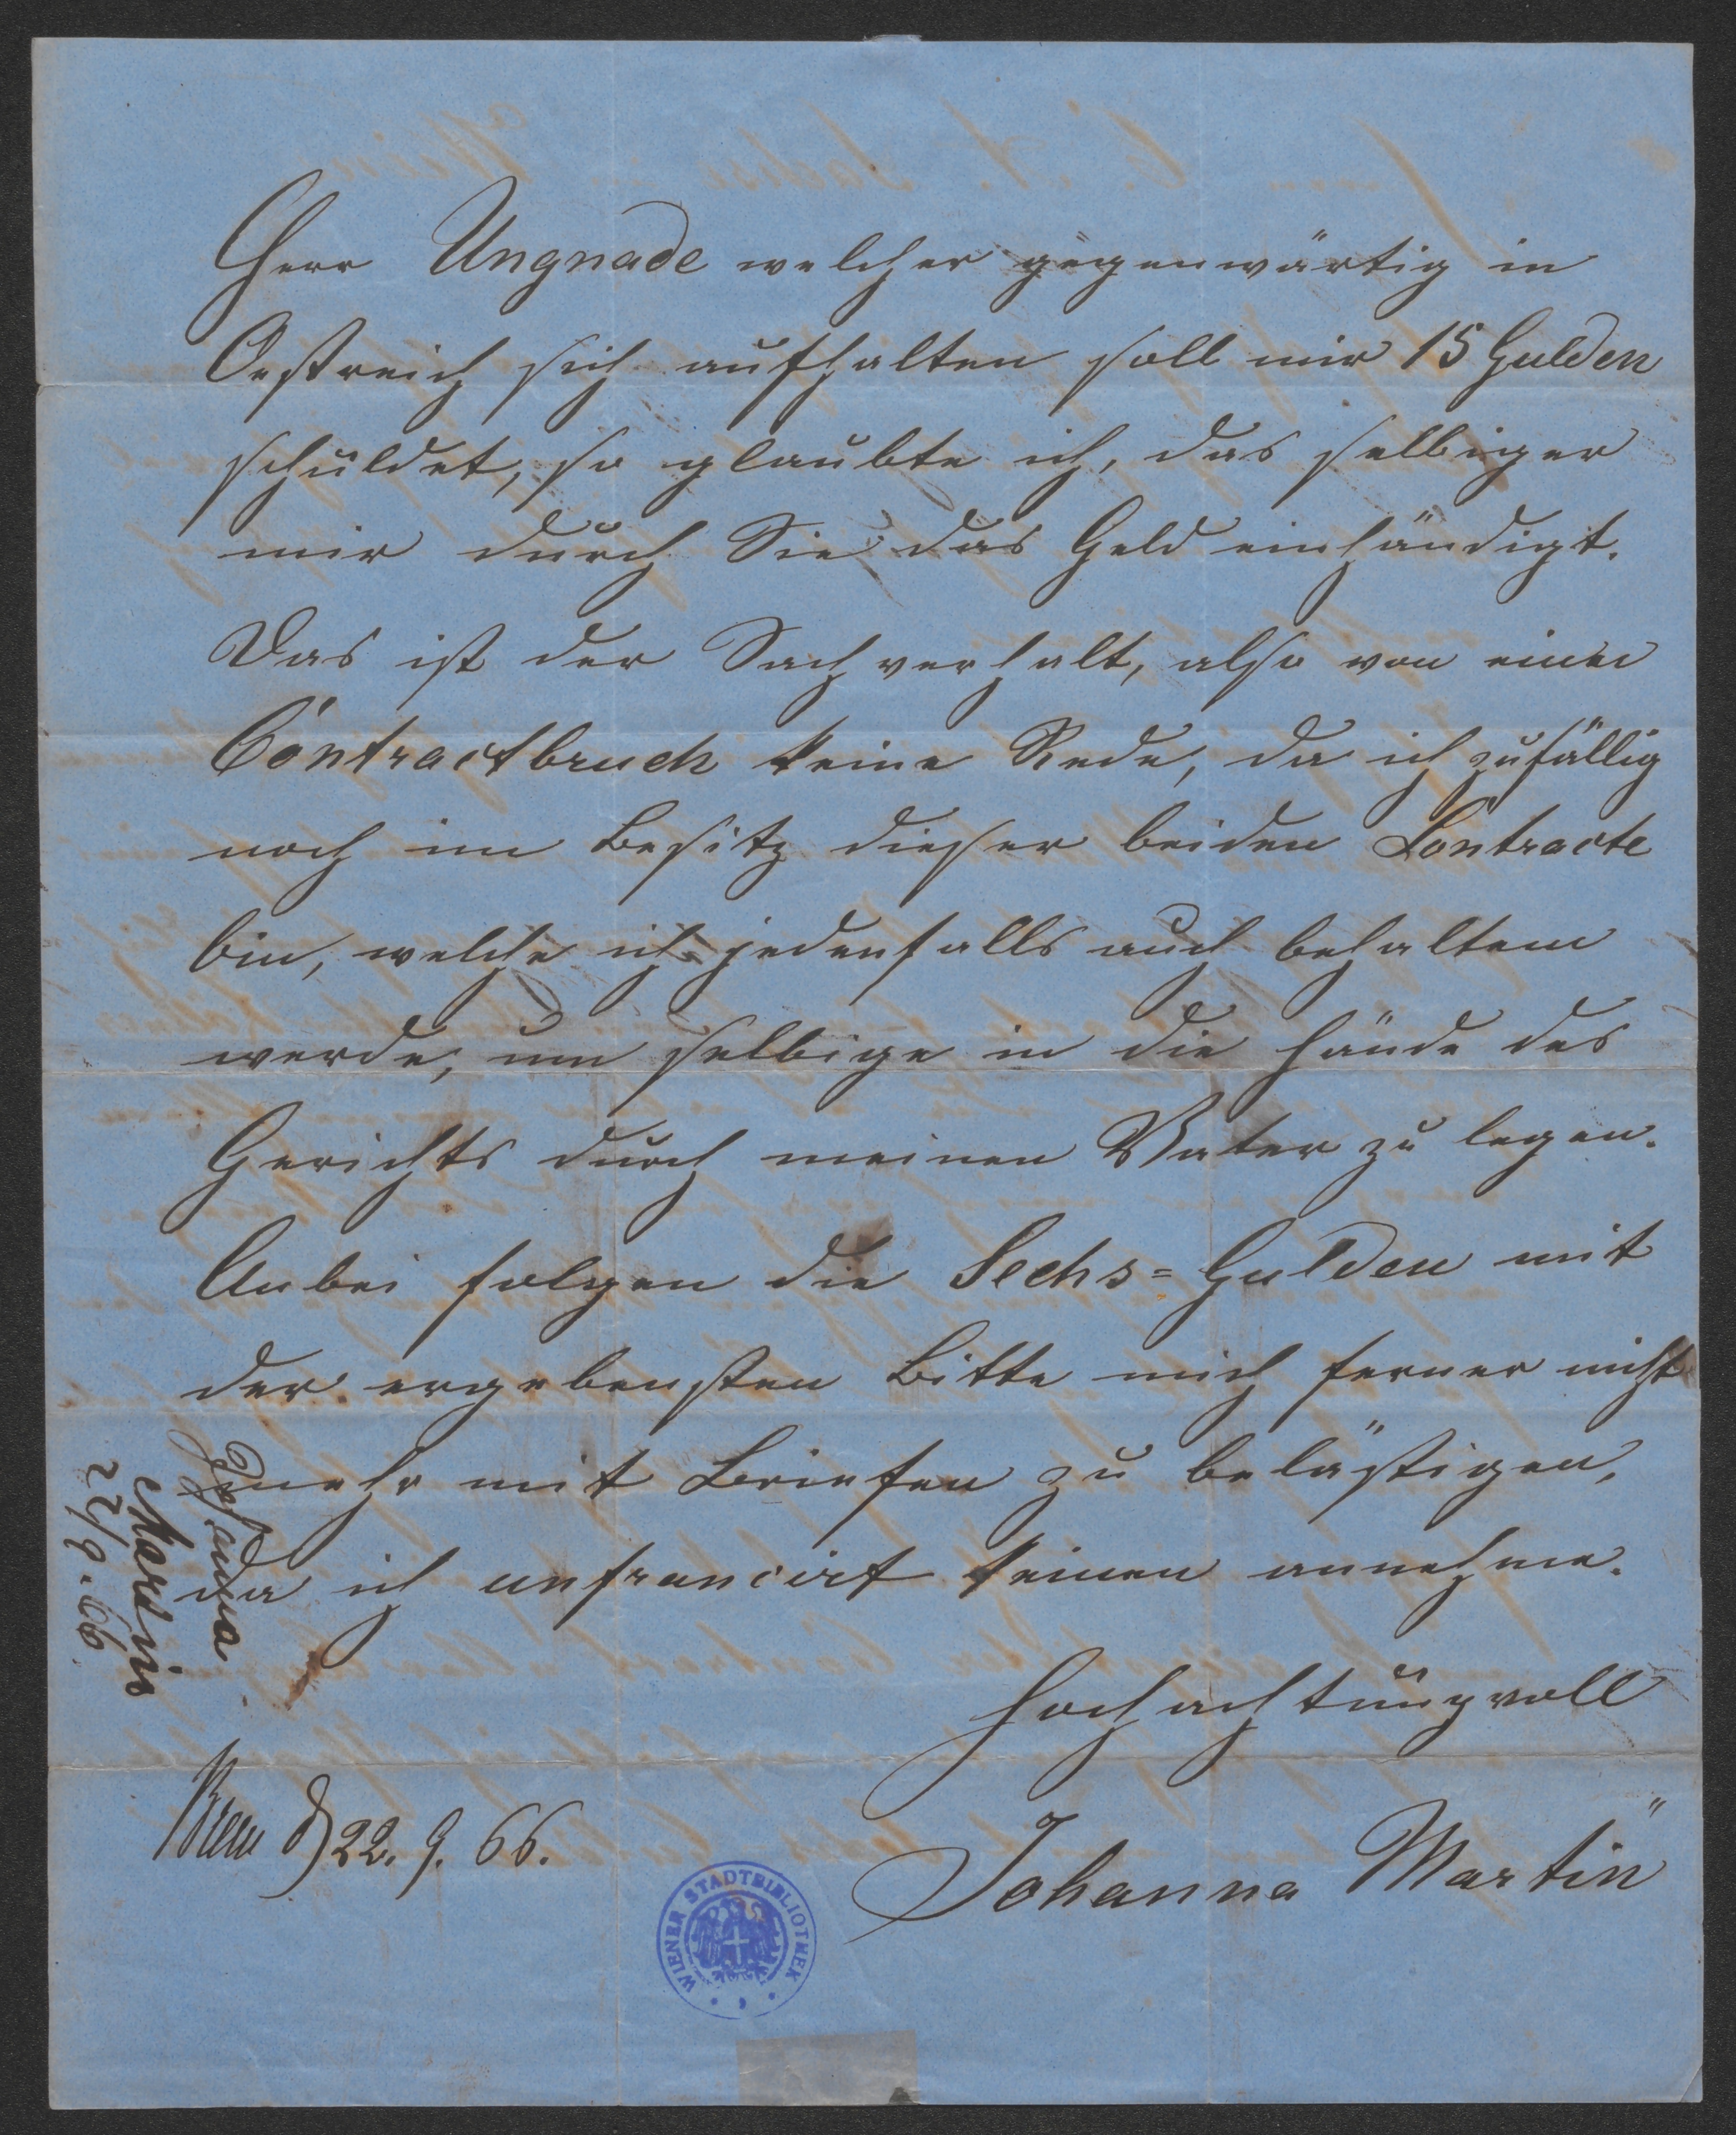 Herr Ungnade welcher gegenwärtig in
Oestreich sich aufhalten soll mir 15 Gulden
schuldet, so glaubte ich, das selbiger
mir durch Sie das Geld einhändigt.
Das ist der Sachverhalt, also von einen
Contractbruch keine Rede, da ich zufällig
noch im Besitz dieser beiden Contracte
bin, welche ich jedenfalls auch behalten
werde, um selbige in die Hände des
Gerichts durch meinen Vater zu legen.
Anbei folgen die Sechs=Gulden mit
der ergebensten Bitte mich ferner nicht
mehr mit Briefen zu belästigen,
da ich unfrancirt keinen annehme.
Hochachtungvoll
Johanna Martin
d 22. 9. 66.
Johanna
Martin
22/9. 66
WIENER STADTBIBLIOTHEK